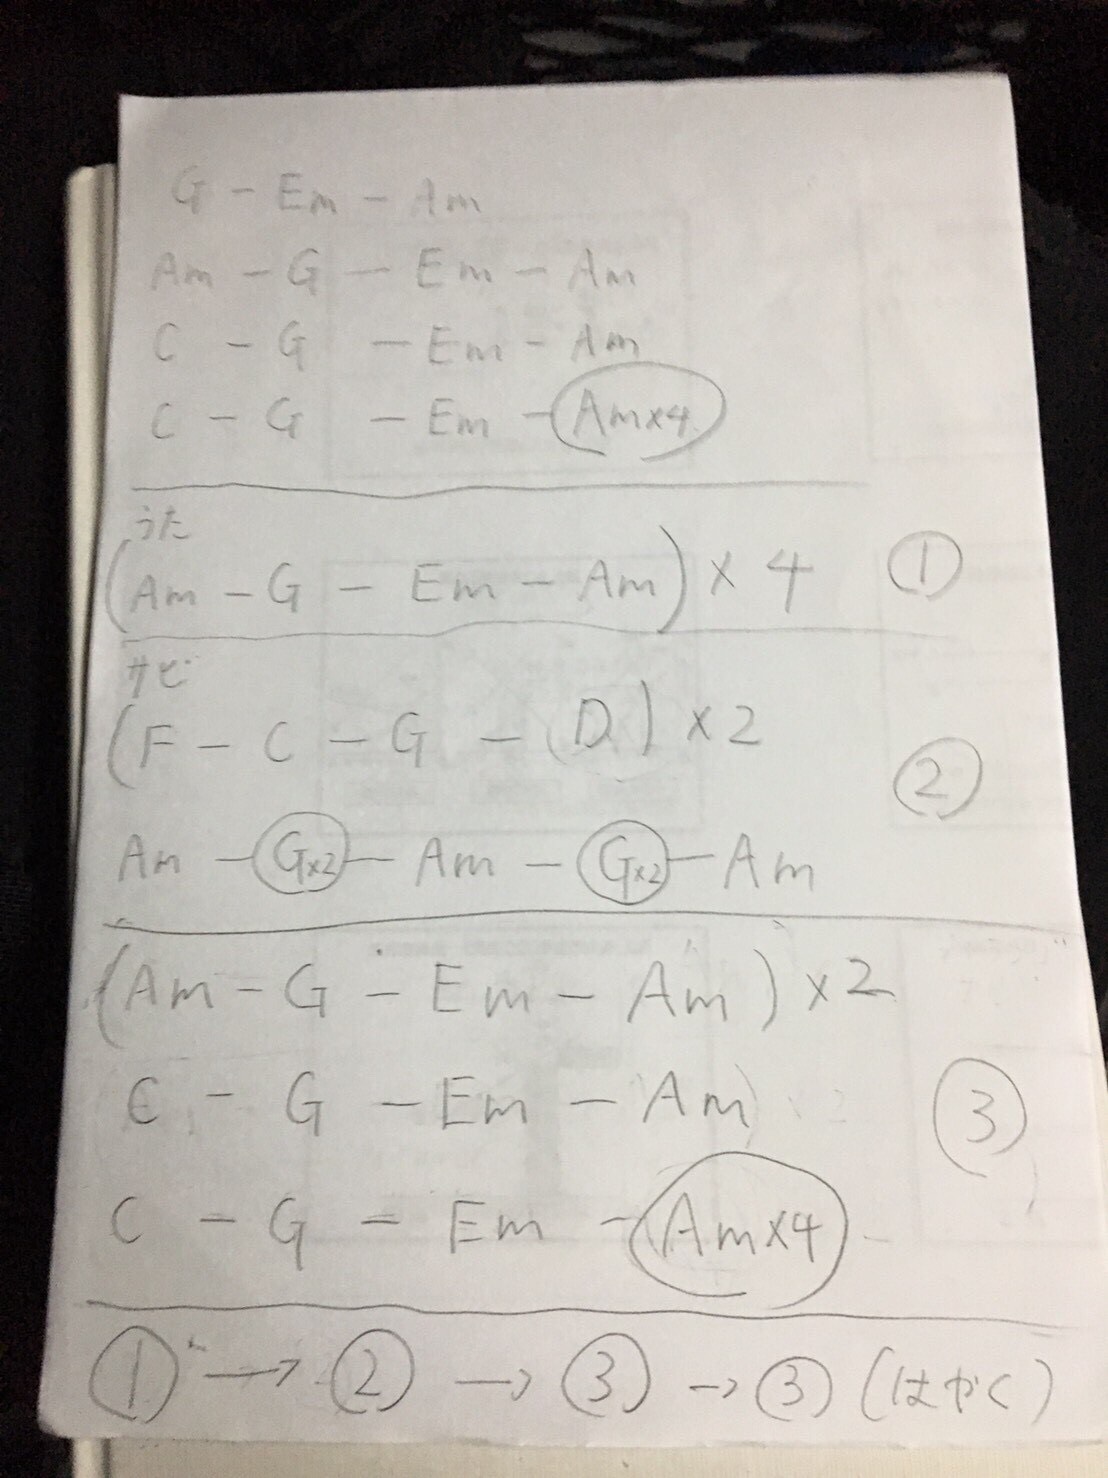 G - Em - Am
Am - G - Em - Am
C - G - Em - Am
C - G - Em - Am×4
うた
(Am - G - Em - Am) × 4 ①
サビ
(F - C - G - D) ×2
②
Am - G×2 - Am - G×2 - Am
(Am - G - Em - Am) ×2
C - G - Em - Am
③
C - G - Em - Am×4
① → ② → ③ → ③ (はやく)